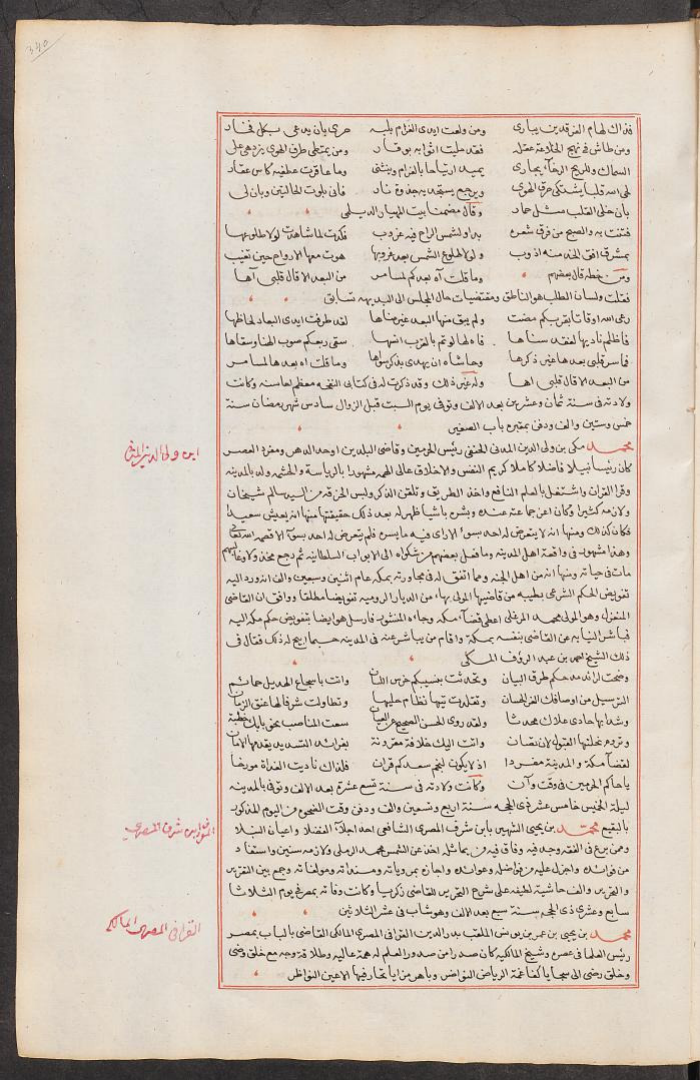 340
فذاك لهام الفرقدين يبارى ومن ولعت ايدى الغرام بلبه حرى بان يدعى بكل فخار
ومن طاش فى نهج الخلاعة عقله فقد حليت اثوابه بوقار ومن يمتطى طرق الهوى يزدهى على
السماك والمريخ الرخآء يجارى يميد ارتياحا بالغرام وينثنى وما عاقرت عطفيه كاس عقار
لحى الله قلبا يشتكى حرق الهوى ويرجيع يستجد به جذوة نار فانى بلوت الحالتين وبان لى
بان خلى القلب مثل حمار وقال مضمنا بيت المهيار الديلمى
فتنت به والصبح من فرق شعره بدا ولشمس الراح فيه غروب فكدت لما شاهدت لولا طلوعها
بمشرق افق الخد منه اذوب ولولا طلوع الشمس بعد غروبها هوت معها الارواح حين تغيب
ومن خطه قال بعضهم وما قلت آه بعدكم لمسامر من البعد الا قال قلبى آها
فقلت ولسان الطلب هو الناطق ومقتضيات حال المجلس الى البديهه تسابق
رعى الله اوقاتا بقربكم مضت ولم يبق منها البعد غير مناها لقد طرفت ايدى البعاد لحاظها
فاظلم ناديها لفقد سناها فاه لها لو تم بالقرب انسها سقى ربعكم صوب الحيا وسقاها
فما سر قلبى بعدها غير ذكرها وحاشاه ان يهدى بذكر سواها وما قلت اه بعدها لمسامر
من البعد الا قال قلبى اها وله غير ذلك وقد ذكرت له فى كتابى النفحه معظم لها سنه وكانت
ولادته فى سنة ثمان وعشرين بعد الالف وتوفى يوم السبت قبل الزوال سادس شهر رمضان سنة
خمس وستين والف ودفن بمقبره باب الصغير
ابن ولى الدين المدنى
محمد مكى بن ولى الدين المدنى الحنفى رئيس الحرمين وقاضى البلدين اوحد الدهر ومفرد العصر
كان رئيسا نبيلا فاضلا كاملا كريم النفس والاخلاق عالى الهمه مشهورا بالرياسة والحشمه ولد بالمدينه
وقرا القران واشتغل بالعلم النافع واخذ الطريق وتلقن الذكر ولبس الخرقة من السيد سالم شيخان
ولازمه كثيرا وكان اعز جماعته عنده وبشره باشيا ظهر له بعد ذلك حقيقتها منها انه يعيش سعيدا
فكان كذلك ومنها انه لا يتعرض له احد بسوء الا راى فيه ما يسره فلم يتعرض له احد بسوء الا قصمه الله تعالى
وهذا مشهور فى واقعة اهل المدينه وما فعل بعضهم من شكواه الى الابواب السلطانيه ثم رجع
مات فى حياته ومنها انه من اهل الجنه ومما اتفق له فى مجاورته بمكه عام اثنين وسبعين والف انه ورد اليه
تفويض الحكم الشرعى بطيبه من قاضيها المولى بهاء من الديار الروميه تفويضا مطلقا ووافق ان القاضى
المنفصل وهو المولى محمد المرغلى اعطى قضآء مكه وجاءه المنشور فارسل هو ايضا بتفويض حكم مكه اليه
فباشر النيابه عن القاضى بنفسه بمكة واقام من يباشر عنه فى المدينه حسبما ابيح له ذلك فقال فى
ذلك الشيخ احمد بن عبد الرؤف المكى
وضحت لرائد مدحكم طرق البيان وتحدثت بعنيبكم خرس اللسان وانت باسجاع الهديل حمائم
الترسيل من اوصافك الغر الحسان وتقلدت تيها نظام حليها وتطاولت شرفا لها عنق الزمان
وشدا بها حادى علاك محدثا ولقد روى الحسن الصحيح عن العيان سعت المناصب نحو بابك خطبة
وتروم نحلتها القبول لان تصان وانت اليك خلافة مقرونة بفرائد التسديد يقدمها الامان
لقضآ مكة والمدينة مفردا اذ لا يكون لنجم سعدكم قران فلذاك ناديت الغداة مورخا
يا حاكم الحرمين فى وقت وآن وكانت ولادته فى سنة تسع عشرة بعد الالف وتوفى بالمدينه
ليلة الخميس خامس عشر ذى الحجه سنة اربع وتسعين والف ودفن وقت الضحوه من اليوم المذكور
ابن شرف المصرى
بالبقيع محمد بن يحيى الشهير بابن شرف المصرى الشافعى احد اجلآء الفضلا واعيان النبلا
وممن برع فى الفقه وجد فيه وفاق فيه من يماثله اخذ عن الشمس محمد الرملى ولازمه سنين واستفاد
من فوائده واجزل عليه من فواضله وعوائده واجازه بمروياته ومسنداته ومولفاته وجمع بين التقرير
والتحرير والف حاشية لطيفه على شرح التحرير القاضى زكريا وكانت وفاته بمصر فى يوم الثلاثا
سابع وعشرى ذى الحجه سنة سبع بعد الالف وهو شاب فى عشر الثلاثين
القرافى المصرى المالكى
محمد بن يحيى بن عمر بن يونس الملقب بدر الدين القرافى المصرى المالكى القاضى بالباب بمصر
رئيس العلما فى عصره وشيخ المالكيه كان صدرا من صدور العلم له همة عاليه وطلاقة وجه مع خلق وضى
وخلق رضى الى سجايا كفاغمة الرياض النواضر وباهر مزايا تحار فيها الاعين النواظر